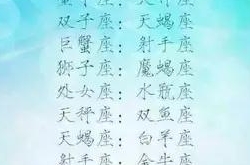 金牛座：天秤座
双子座：天蝎座
巨蟹座：射手座
狮子座：魔蝎座
处女座：水瓶座
天秤座：双鱼座
天蝎座：白羊座
射手座：金牛座